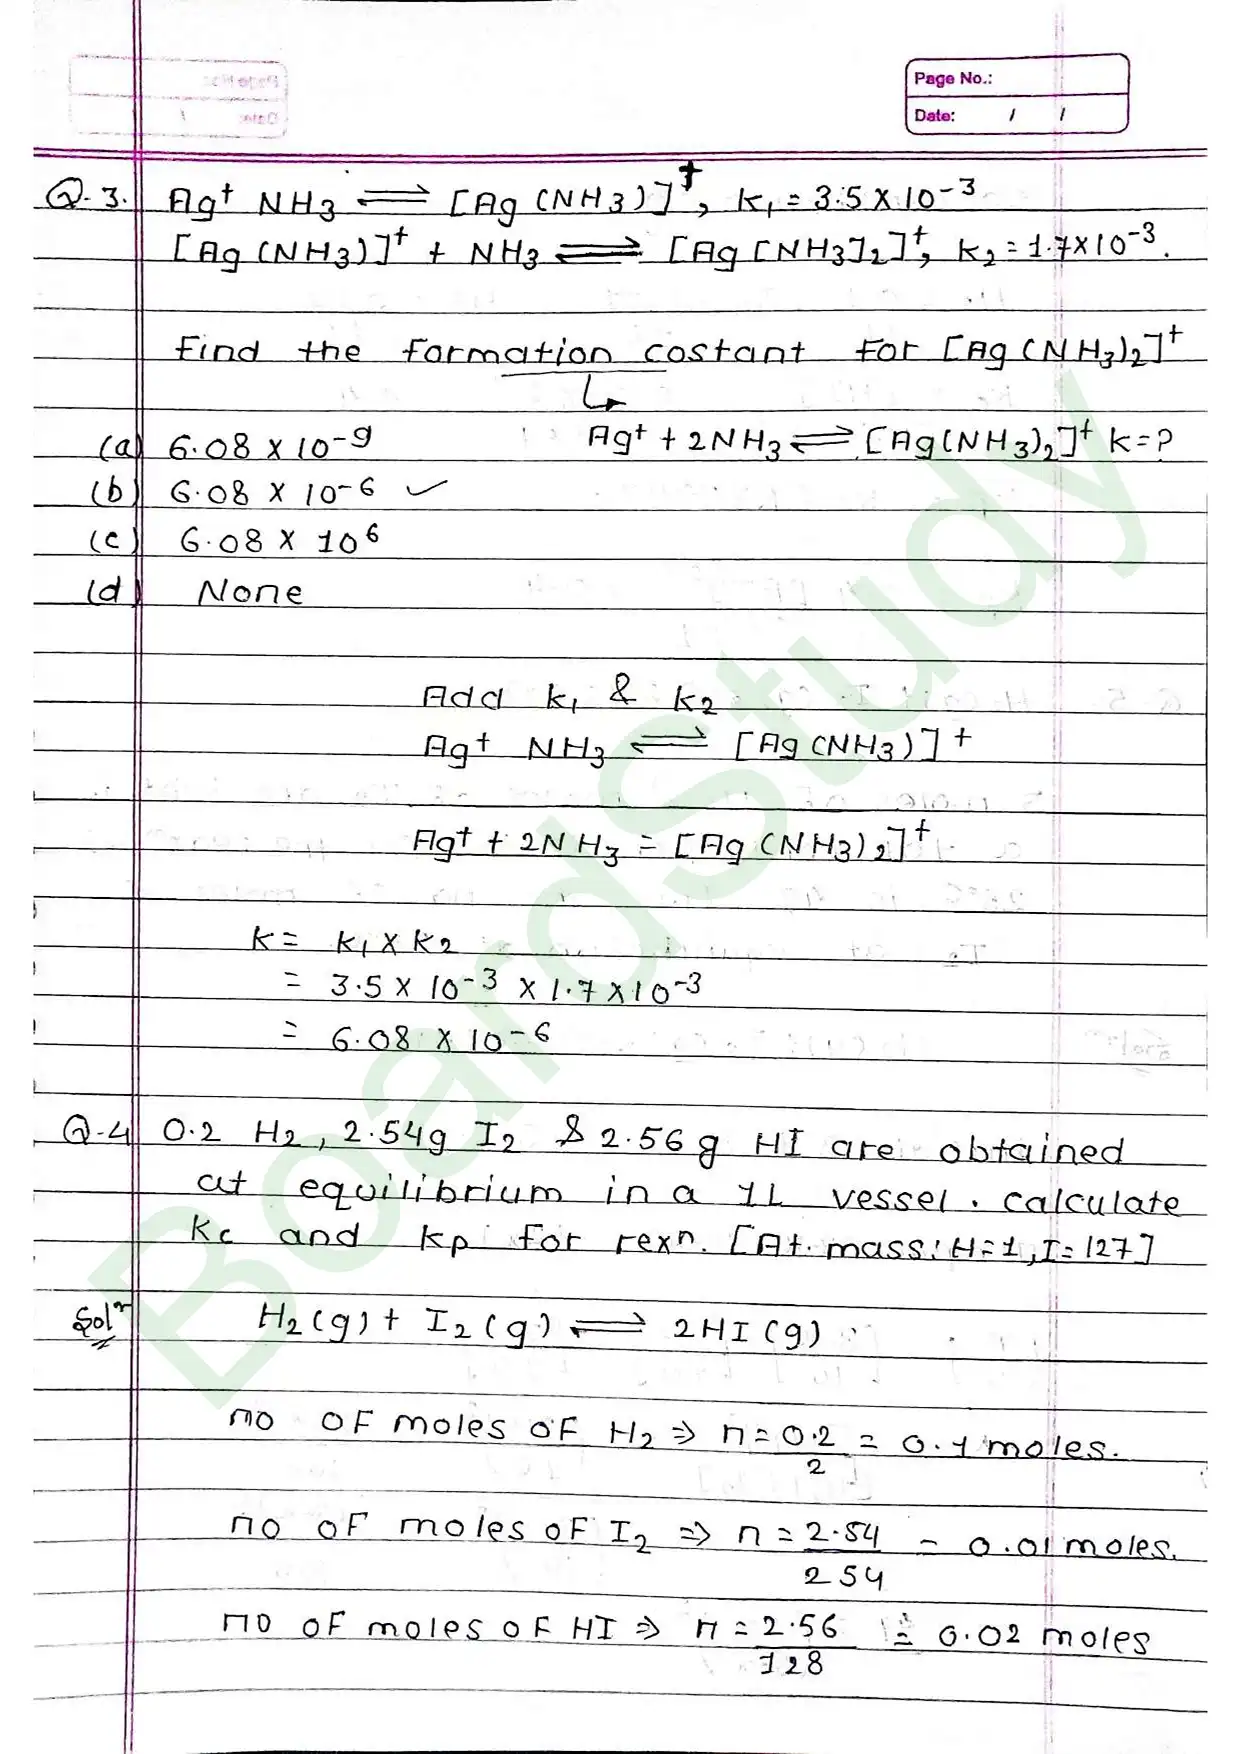 Page No.:
Date: / /
Q.3. Ag⁺ NH₃ ⇌ [Ag (NH₃)]⁺, K₁ = 3.5 × 10⁻³
[Ag (NH₃)]⁺ + NH₃ ⇌ [Ag [NH₃]₂]⁺, K₂ = 1.7×10⁻³.
Find the formation costant for [Ag (NH₃)₂]⁺
↳
(a) 6.08 × 10⁻⁹ Ag⁺ + 2NH₃ ⇌ [Ag(NH₃)₂]⁺ K=?
(b) 6.08 × 10⁻⁶ ✓
(c) 6.08 × 10⁶
(d) None
Add K₁ & K₂
Ag⁺ NH₃ ⇌ [Ag (NH₃)]⁺
Ag⁺ + 2NH₃ = [Ag (NH₃)₂]⁺
K = K₁ × K₂
= 3.5 × 10⁻³ × 1.7 × 10⁻³
= 6.08 × 10⁻⁶
Q.4 0.2 H₂, 2.54g I₂ & 2.56 g HI are obtained
at equilibrium in a 1L vessel. calculate
Kc and Kp for rexⁿ. [At. mass: H=1, I=127]
Solⁿ H₂(g) + I₂(g) ⇌ 2HI(g)
no of moles of H₂ ⇒ n = 0.2/2 = 0.1 moles.
no of moles of I₂ ⇒ n = 2.54/254 = 0.01 moles.
no of moles of HI ⇒ n = 2.56/128 = 0.02 moles
BoardStudy